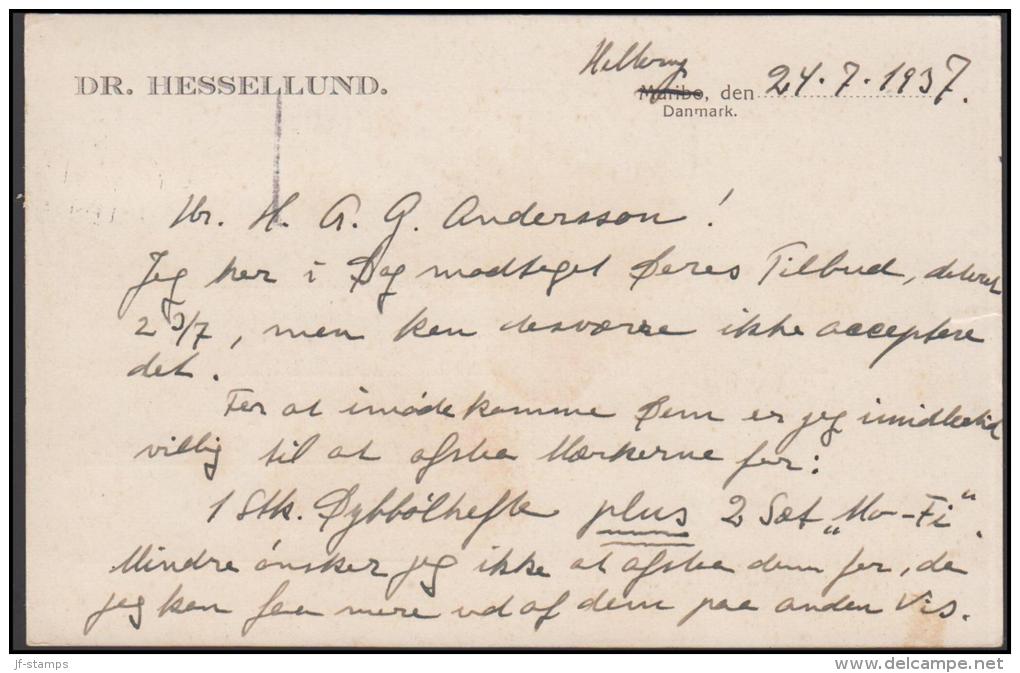 DR. HESSELLUND.
Maribo, den 24.7.1937.
Danmark.
Hr. H. A. G. Andersson!
Jeg har i Dag modtaget Deres Tilbud, dateret
23/7, men kan desværre ikke acceptere
det.
For at imødekomme Dem er jeg imidlertid
villig til at afstaa Mærkerne for:
1 Stk. Dybbølhefte plus 2 Sæt „Mo-Fi“.
Mindre ønsker jeg ikke at afstaa dem for, da
jeg kan faa mere ud af dem paa anden Vis.
jf-stamps
www.delcampe.net